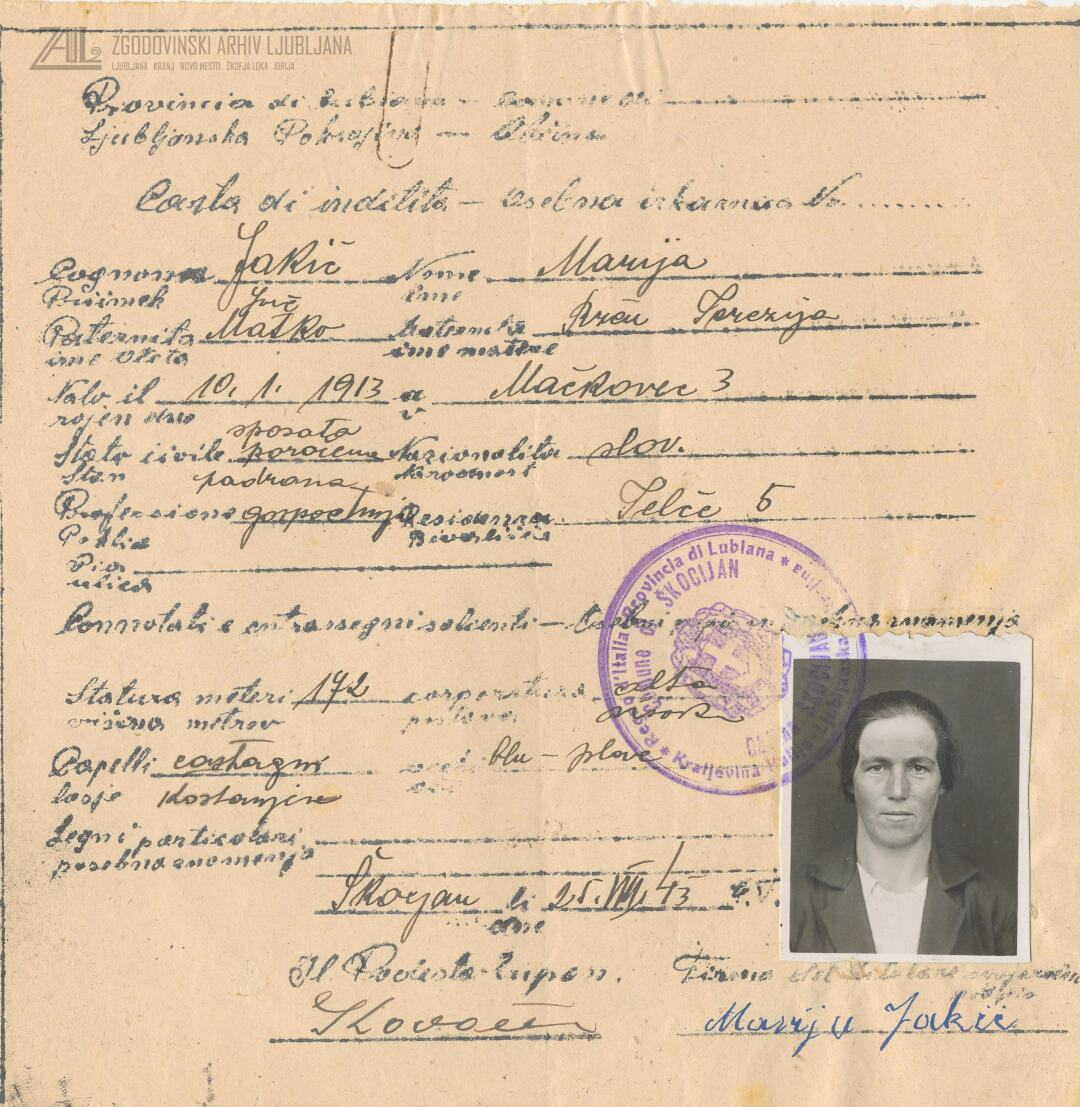 ZAL ZGODOVINSKI ARHIV LJUBLJANA
LJUBLJANA KRANJ NOVO MESTO ŠKOFJA LOKA IDRIJA
Provincia di Lubiana — Comune di
Ljubljanska Pokrajina — Občina
Carta di indilita — osebna izkaznica No
Cognome Jakič Nome Marija
Priimek ime
Paternita Matko Maternita Terezija
ime očeta ime matere
Nato il 10. 1. 1913 a Mačkovec 3
rojen dne v
sposata
Stato civile poročena Nazionalita slov.
Stan Narodnost
padrona
Professione gospodinja Residenza Telče 5
Poklic Bivališče
Via
ulica
Connotati e contrassegni salienti — Osebni popis in znamenja
Statura metri 172 corporatura alta
višina metrov postava visoka
Capelli castagni occhi blu - plave
lasje kostanjeve oči
Segni particolari
posebna znamenja
Škocjan li 25. VIII. 43 E.V.
dne
Il Podesta - Župan. Firma del titolare svojeročni
podpis
Marija Jakič
Regno d'Italia Provincia di Lubiana * Kraljevina Italija - Ljubljanska pokrajina *
Comune di ŠKOCIJAN
Občina ŠKOCIJAN